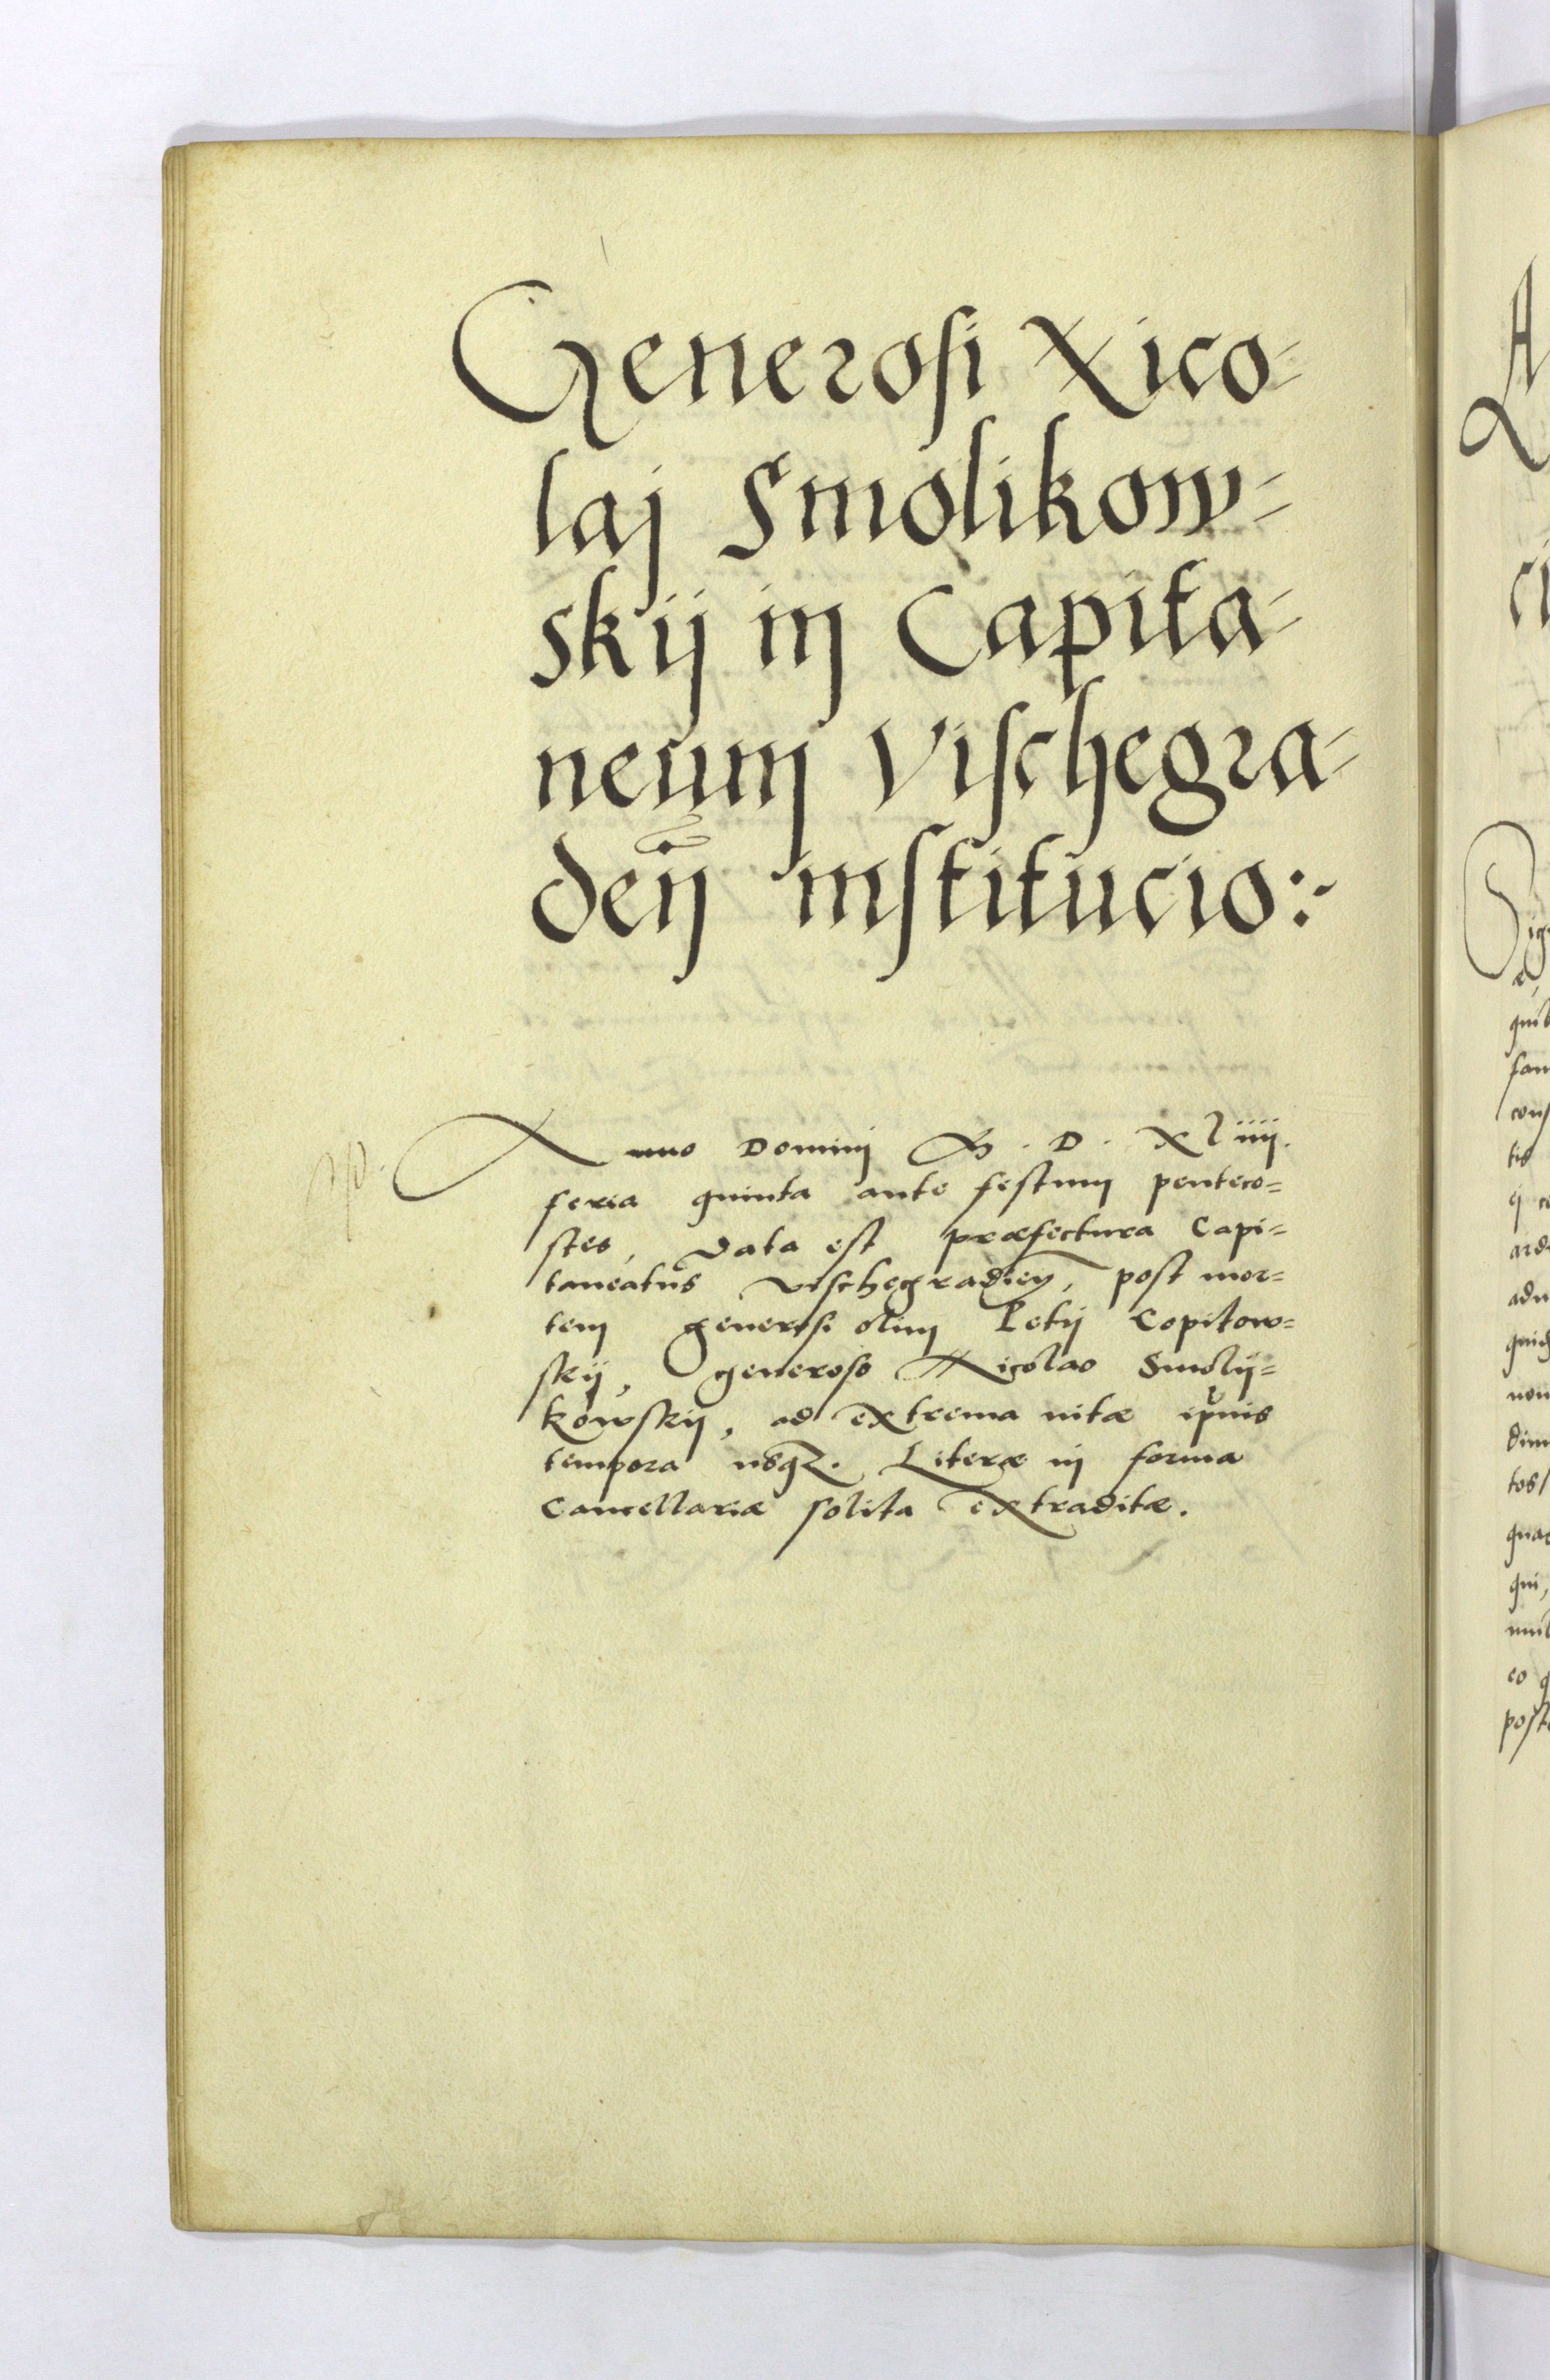 Generosi Nico-
laj Smolikow-
skij in Capita-
neum Vischegra-
deñ institucio:~
Anno Domini M. D. XLiiij.
feria quinta ante festum penteco-
stes, Data est præfectura Capi-
taneatus vischegradien̄, post mor-
tem generosi olim Petij Copitow-
skij, generoso Nicolao Smolij-
kowskij, ad extrema uitæ ipius
tempora usq3. Literæ in forma
Cancellariæ solita extraditæ.